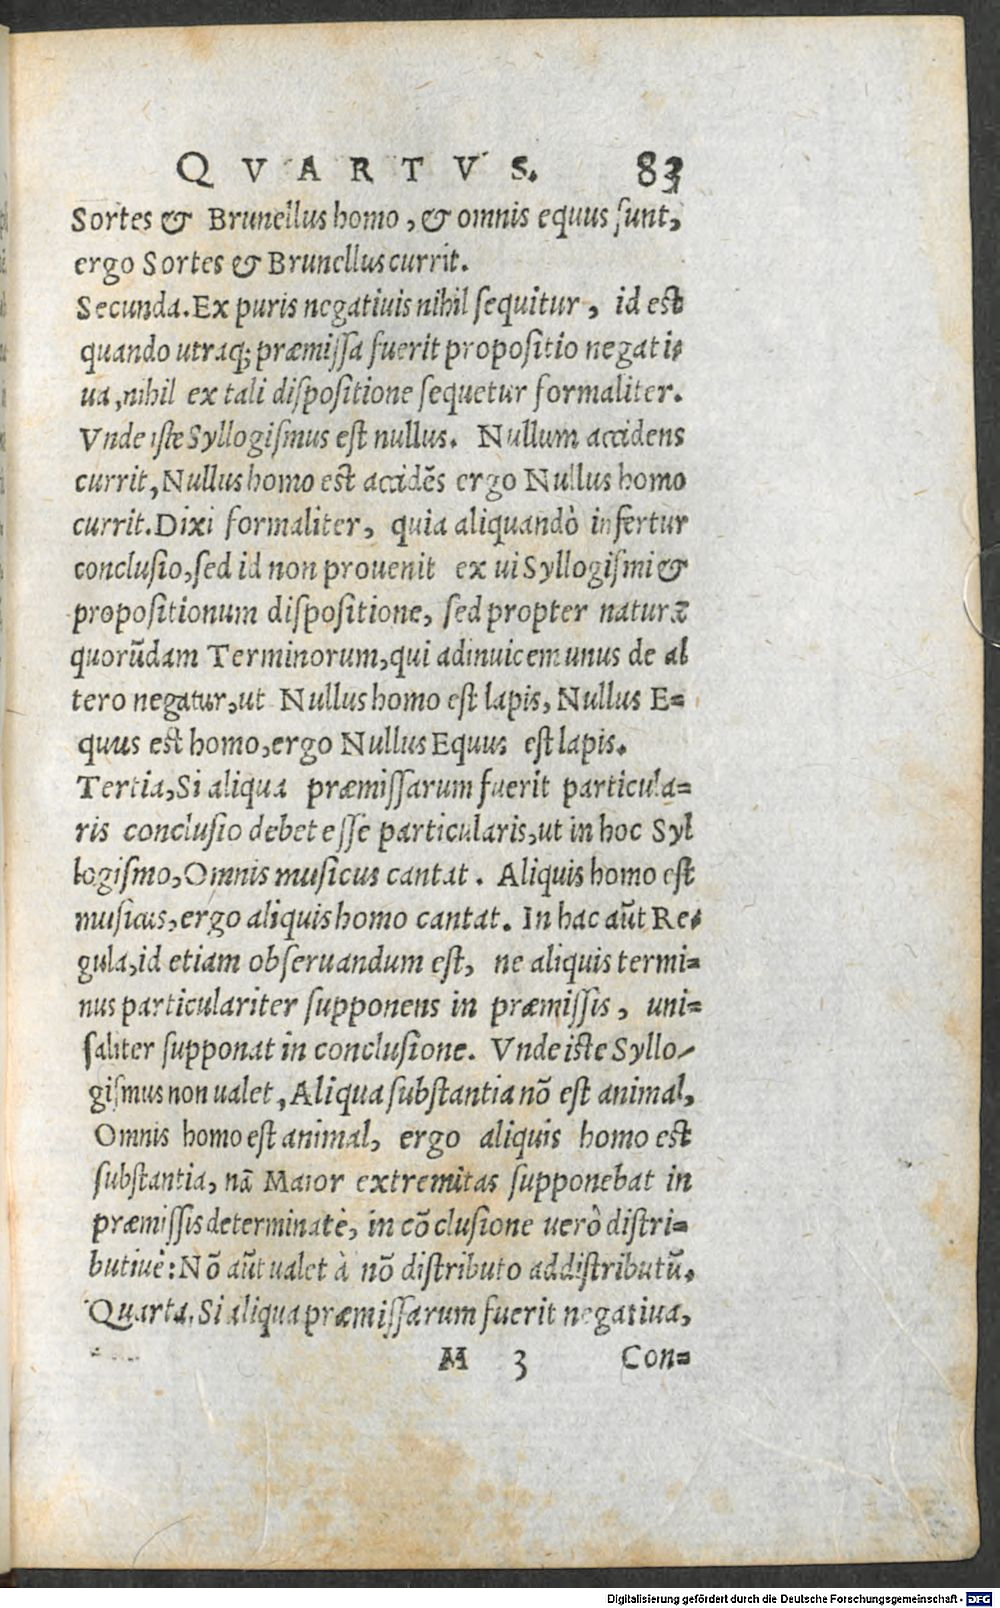 QVARTVS. 83
Sortes & Brunellus homo, & omnis equus sunt,
ergo Sortes & Brunellus currit.
Secunda. Ex puris negatiuis nihil sequitur, id est
quando utraq; præmissa fuerit propositio negati-
ua, nihil ex tali dispositione sequetur formaliter.
Vnde iste Syllogismus est nullus. Nullum accidens
currit, Nullus homo est accidēs ergo Nullus homo
currit. Dixi formaliter, quia aliquandò infertur
conclusio, sed id non prouenit ex ui Syllogismi &
propositionum dispositione, sed propter naturā
quorūdam Terminorum, qui adinuicem unus de al
tero negatur, ut Nullus homo est lapis, Nullus E-
quus est homo, ergo Nullus Equus est lapis.
Tertia, Si aliqua præmissarum fuerit particula-
ris conclusio debet esse particularis, ut in hoc Syl
logismo, Omnis musicus cantat. Aliquis homo est
musicus, ergo aliquis homo cantat. In hac aūt Re-
gula, id etiam obseruandum est, ne aliquis termi-
nus particulariter supponens in præmissis, uni-
saliter supponat in conclusione. Vnde iste Syllo-
gismus non ualet, Aliqua substantia nō est animal,
Omnis homo est animal, ergo aliquis homo est
substantia, nā Maior extremitas supponebat in
præmissis determinatè, in cōclusione uerò distri-
butiuè: Nō aūt ualet à nō distributo ad distributū.
Quarta, Si aliqua præmissarum fuerit negatiua,
M 3 Con-
Digitalisierung gefördert durch die Deutsche Forschungsgemeinschaft - DFG